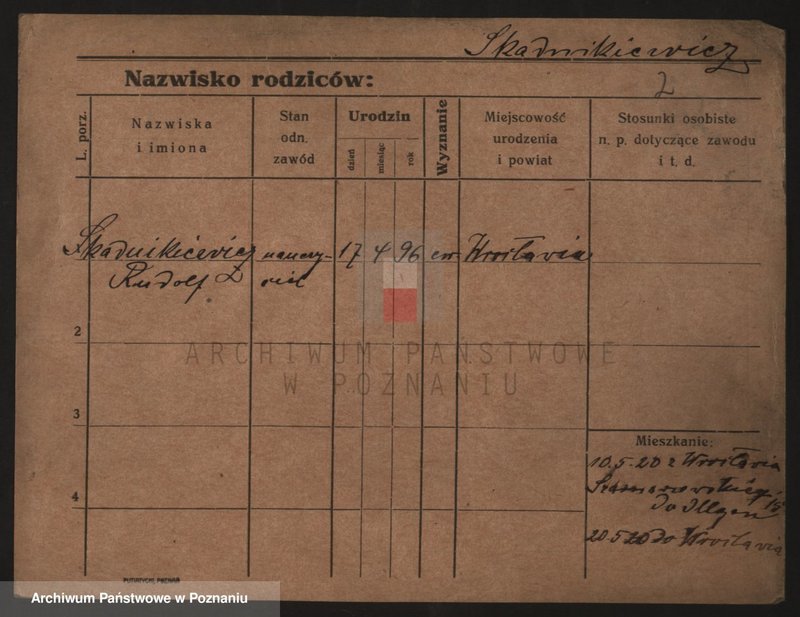 Skadnikiewicz
Nazwisko rodziców:
2
L. porz.
Nazwiska
i imiona
Stan
odn.
zawód
Urodzin
dzień
miesiąc
rok
Wyznanie
Miejscowość
urodzenia
i powiat
Stosunki osobiste
n. p. dotyczące zawodu
i t. d.
Skadnikiewicz nauczy- 17 4 96 ew Wrocławia
Rudolf ciel
2
ARCHIWUM PAŃSTWOWE
W POZNANIU
3
Mieszkanie:
10.5.20 z Wrocławia
4
15
do Illgen
20 5 20 do Wrocławia
PUTIATYCKI, POZNAŃ
Archiwum Państwowe w Poznaniu